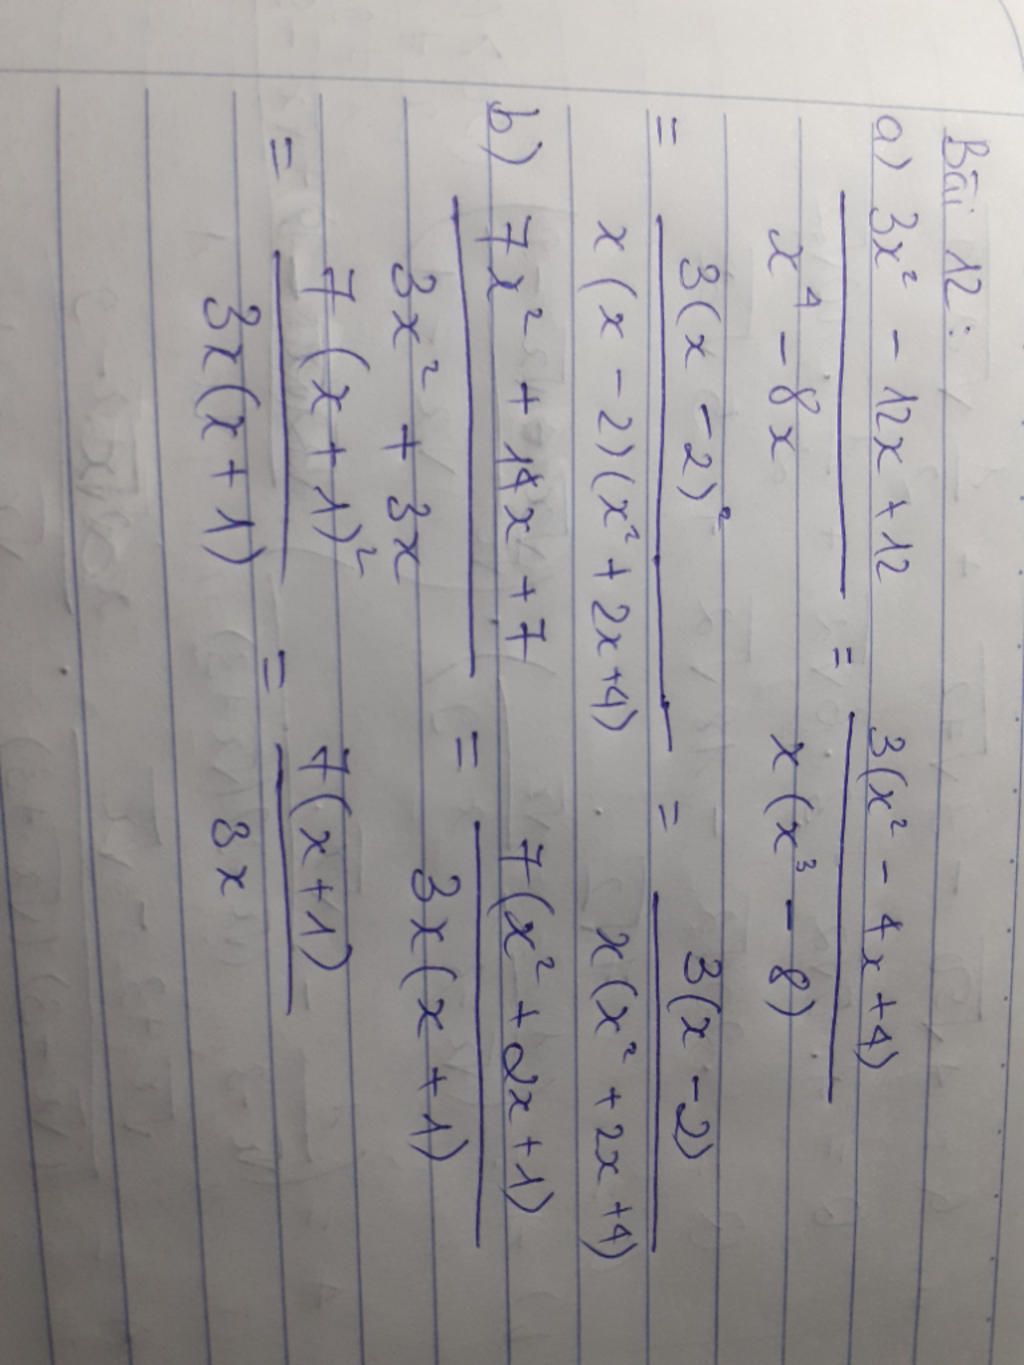 Bài 12:
a) 3x² - 12x + 12 / x⁴ - 8x = 3(x² - 4x + 4) / x(x³ - 8)
= 3(x - 2)² / x(x - 2)(x² + 2x + 4) = 3(x - 2) / x(x² + 2x + 4)
b) 7x² + 14x + 7 / 3x² + 3x = 7(x² + 2x + 1) / 3x(x + 1)
= 7(x + 1)² / 3x(x + 1) = 7(x + 1) / 3x